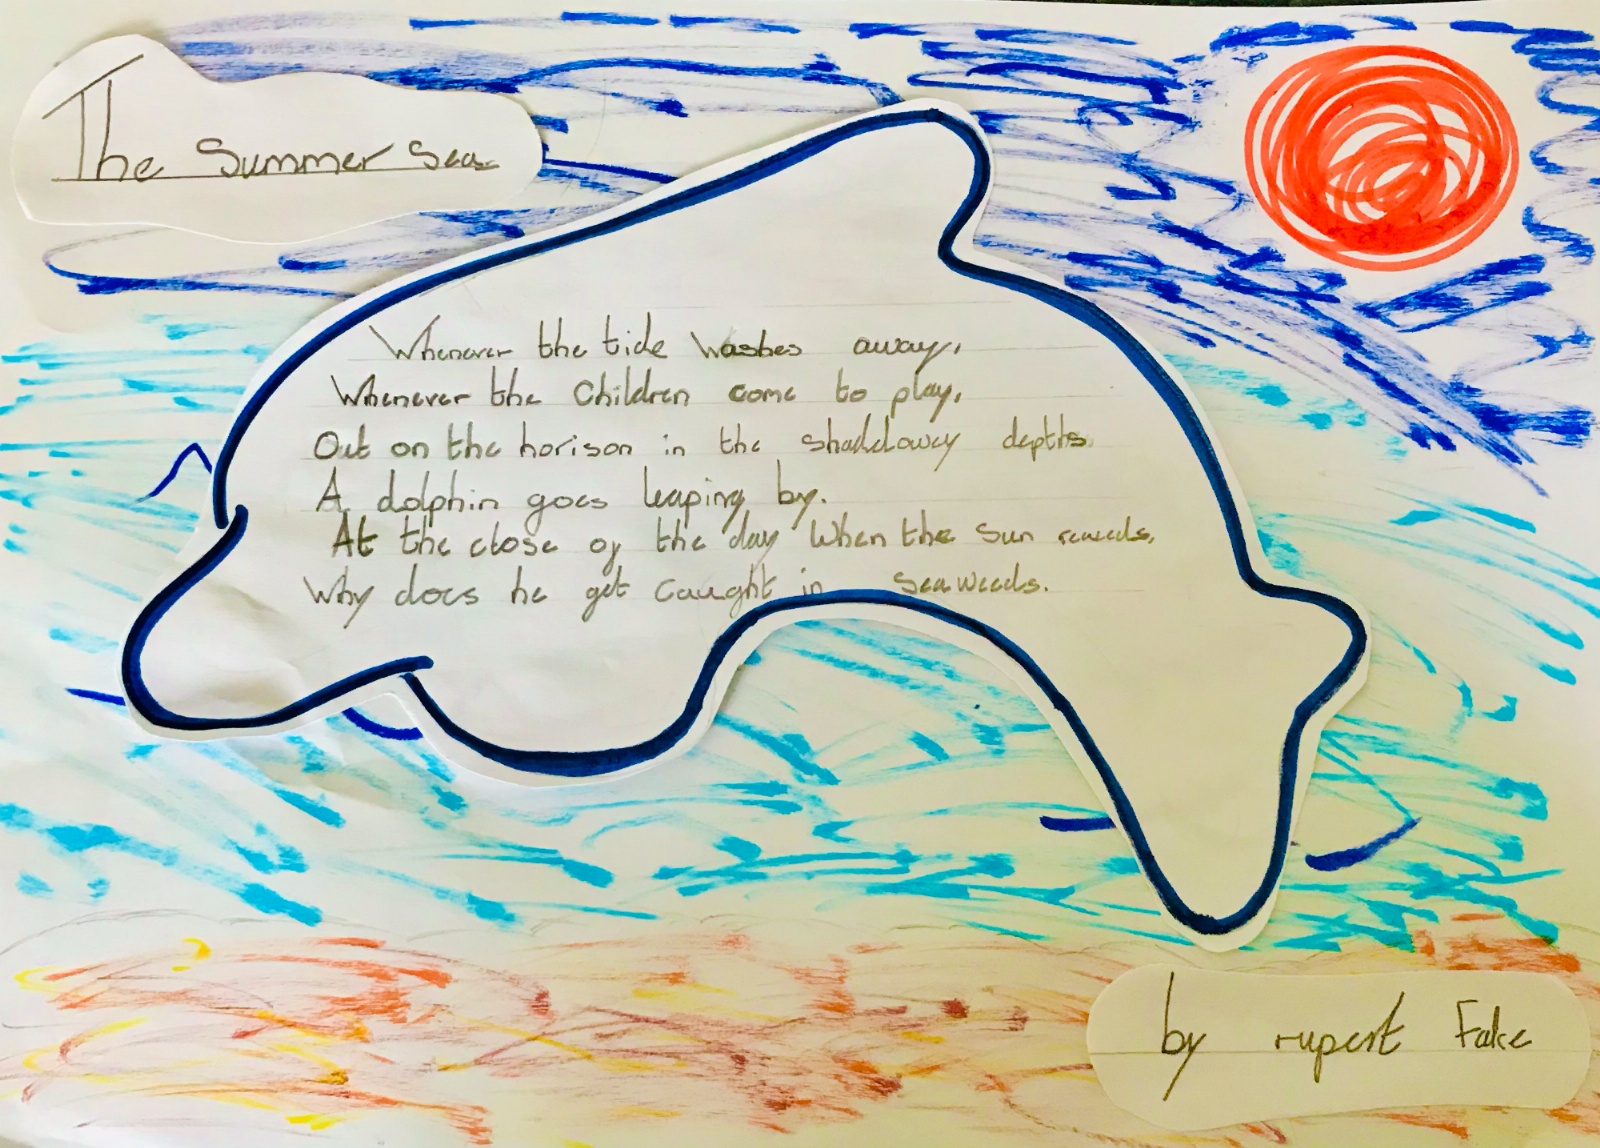 The Summer Sea
Whenever the tide washes away,
Whenever the Children come to play,
Out on the horison in the shaddowey depths
A dolphin goes leaping by.
At the close of the day When the Sun reweeds,
Why does he get Caught in Seaweeds.
by rupert Fake